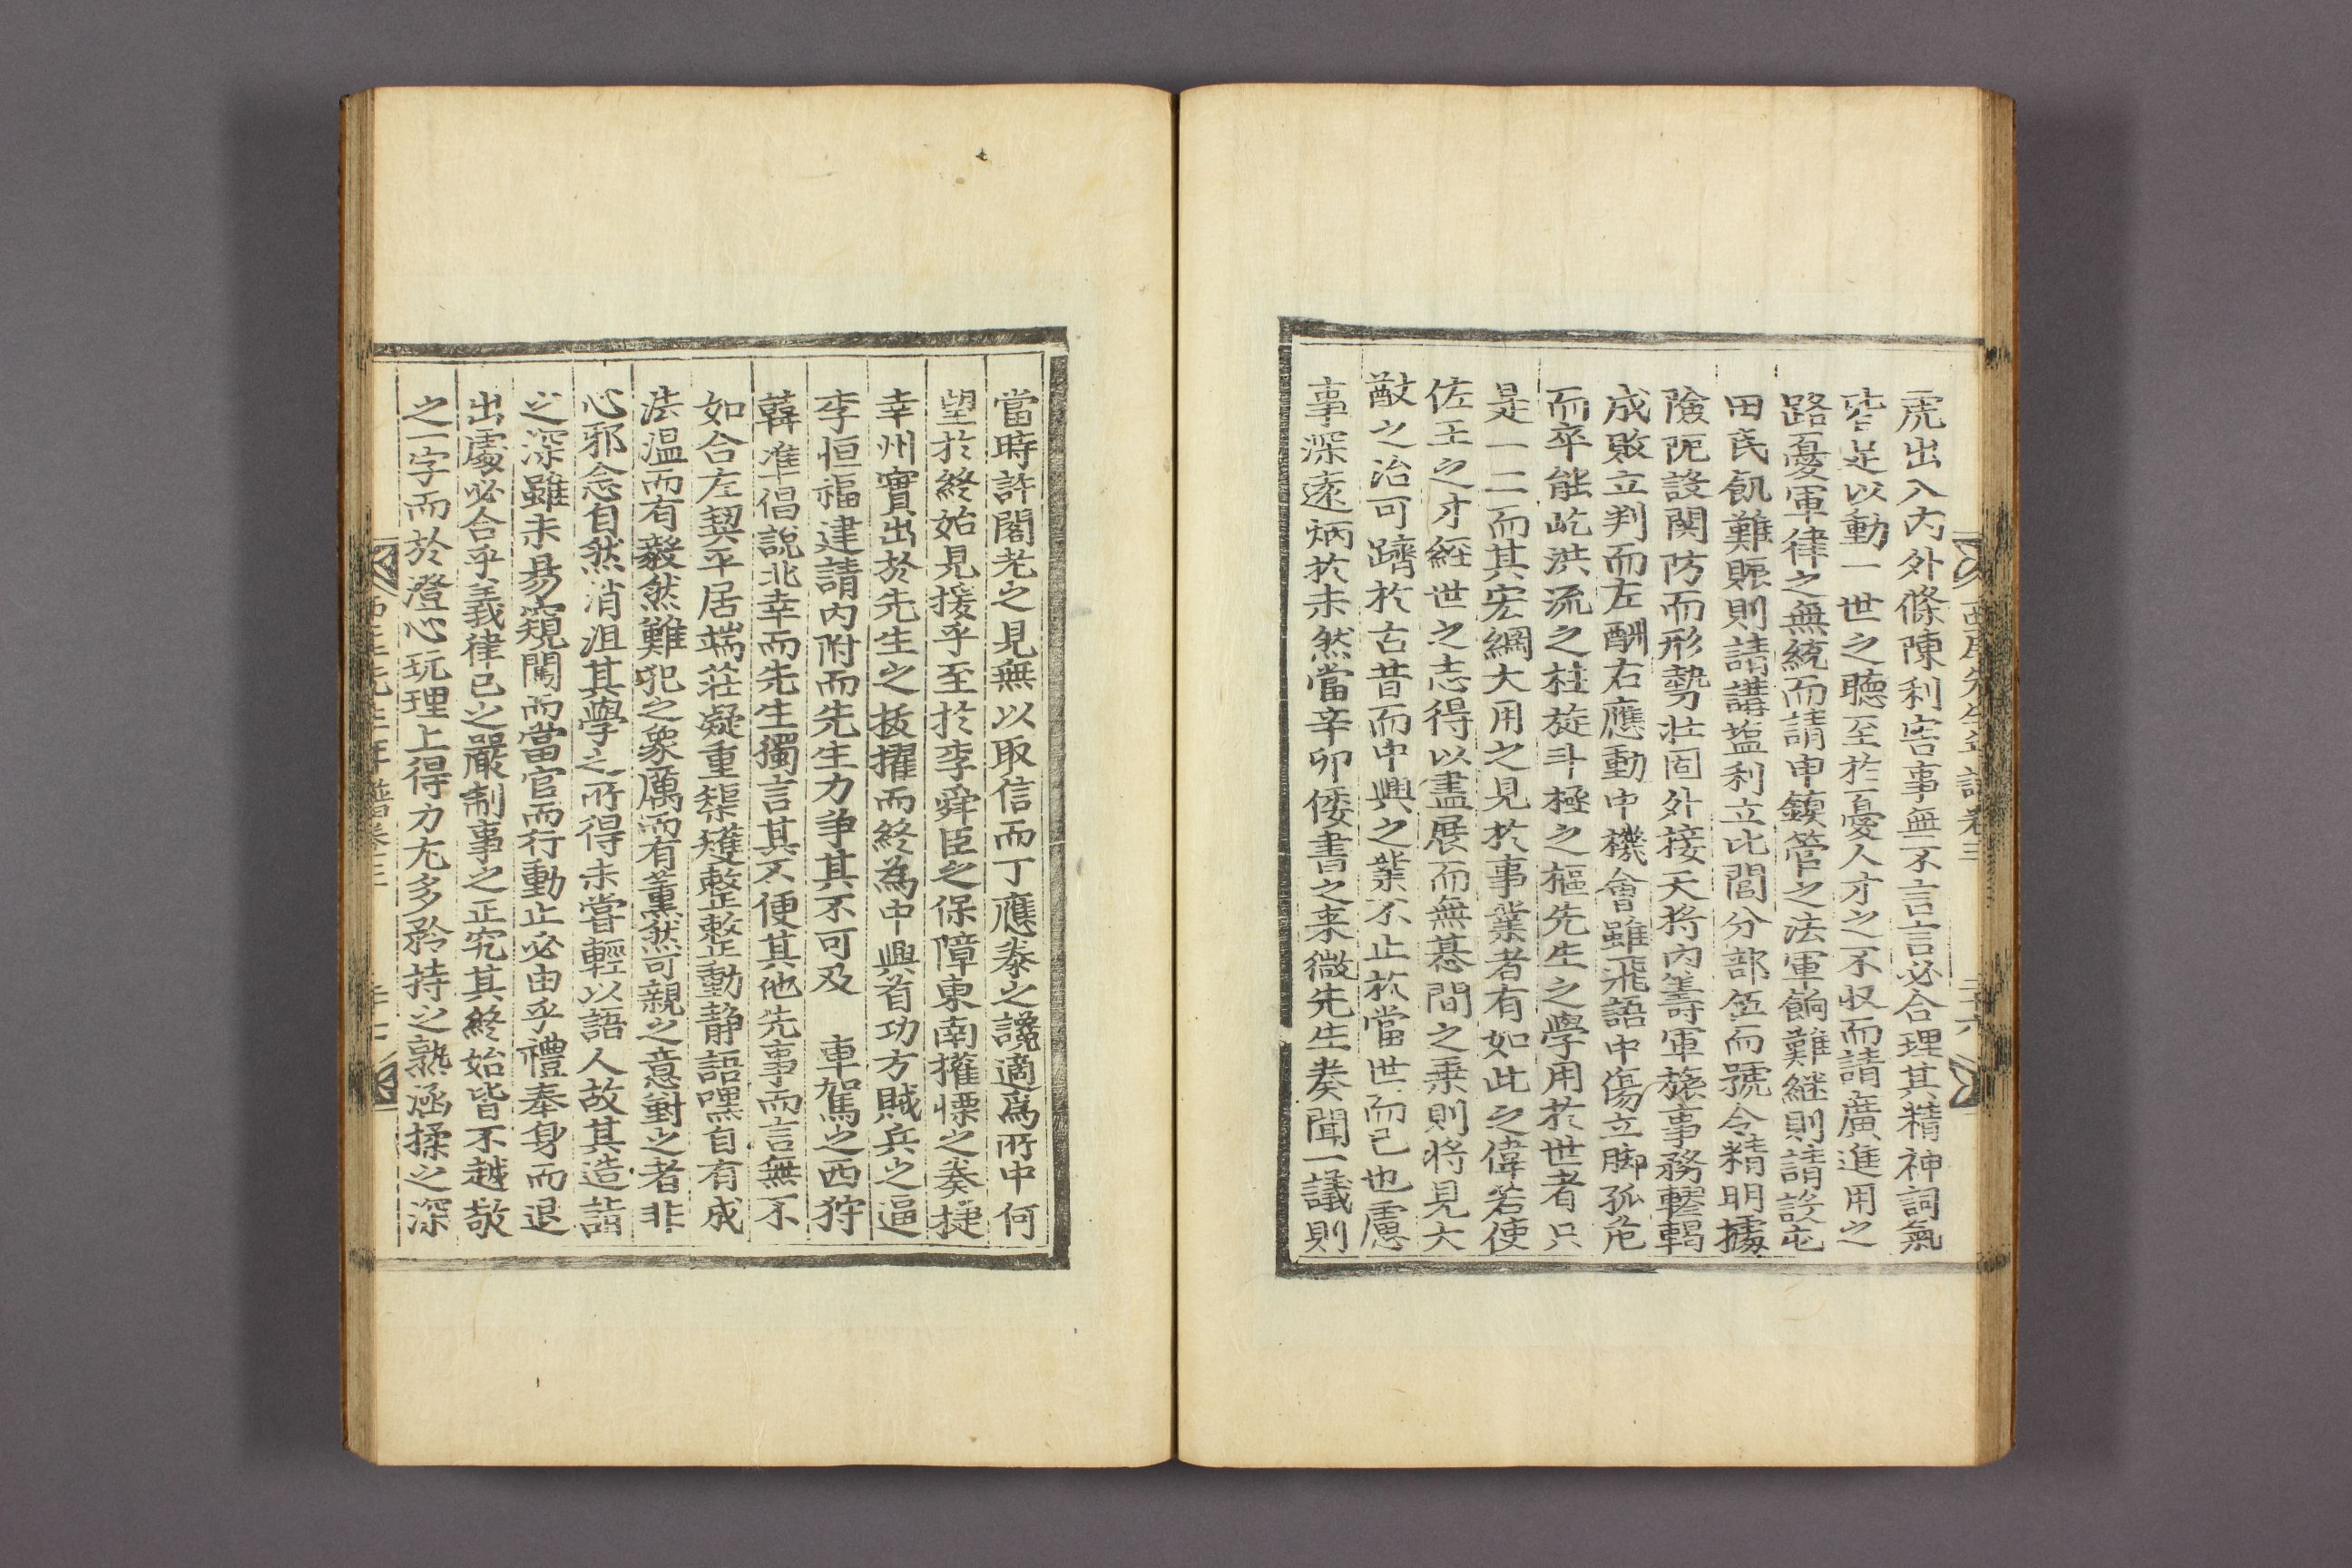 西厓先生年譜卷三
三十六
虎出入內外條陳利害事無不言言必合理其精神詞氣
皆足以動一世之聽至於憂人才之不收而請廣進用之
路憂軍律之無統而請申鎮管之法軍餉難繼則請設屯
田民飢難賑則請講塩利立比閭分部伍而號令精明據
險阨設關防而形勢壯固外接天將內籌軍旅事務轇轕
成敗立判而左酬右應動中機會雖飛語中傷立脚孤危
而卒能屹洪流之柱旋斗極之樞先生之學用於世者只
是一二而其宏綱大用之見於事業者有如此之偉若使
佐王之才經世之志得以盡展而無碁間之乘則將見大
猷之治可躋於古昔而中興之業不止於當世而已也慮
事深遠炳於未然當辛卯倭書之来微先生奏聞一議則
當時許閣老之見無以取信而丁應泰之讒適爲所中何
望於終始見援乎至於李舜臣之保障東南權慄之奏捷
幸州實出於先生之拔擢而終為中興首功方賊兵之逼
李恒福建請內附而先生力爭其不可及　車駕之西狩
韓准倡說北幸而先生獨言其不便其他先事而言無不
如合左契平居端莊凝重榘矱整整動静語嘿自有成
法温而有毅然難犯之象厲而有薰然可親之意對之者非
心邪念自然消沮其學之所得未嘗輕以語人故其造詣
之深雖未易窺闖而當官而行動止必由乎禮奉身而退
出處必合乎義律己之嚴制事之正究其終始皆不越敬
之一字而於澄心玩理上得力尤多矜持之熟涵揉之深
西厓先生年譜卷三